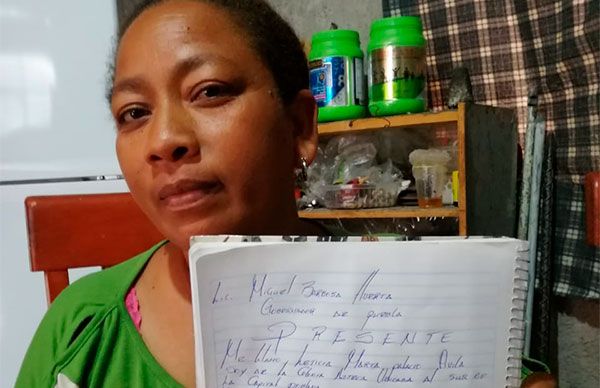 Lic. Miguel Barbosa Huerta
Gobernador de Puebla
PRESENTE
Me llamo, Leticia Marta Palacio Avila
soy de la Colonia Azteca Ubicada al sur de
la Capital